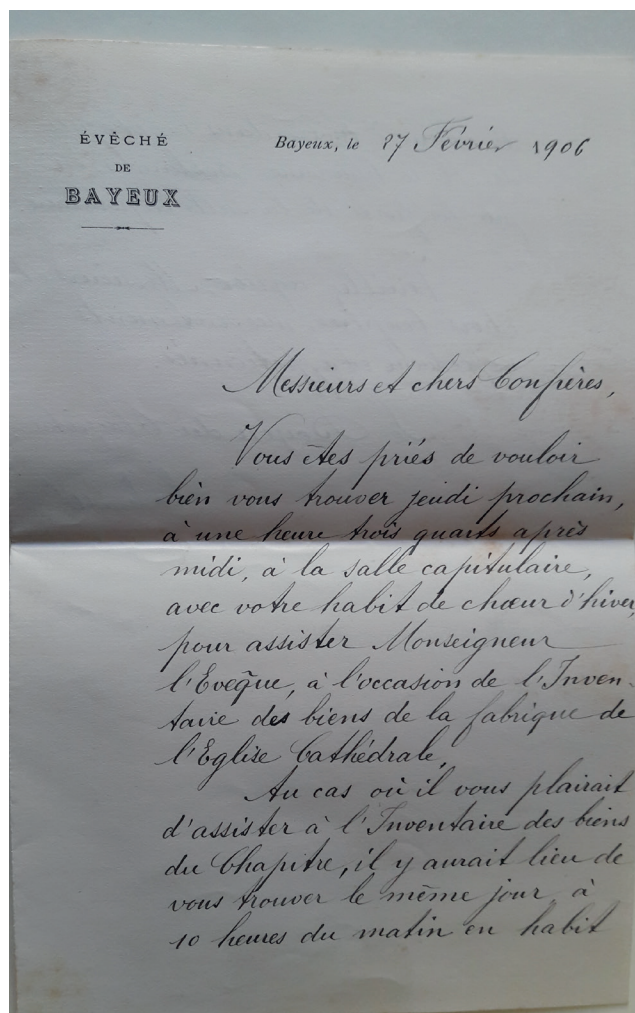 ÉVÊCHÉ
DE
BAYEUX
Bayeux, le 27 Février 1906
Messieurs et chers Confrères,
Vous êtes priés de vouloir
bien vous trouver jeudi prochain,
à une heure trois quarts après
midi, à la salle capitulaire,
avec votre habit de chœur d'hiver,
pour assister Monseigneur
l'Evêque, à l'occasion de l'Inven-
taire des biens de la fabrique de
l'Eglise Cathédrale.
Au cas où il vous plairait
d'assister à l'Inventaire des biens
du Chapitre, il y aurait lieu de
vous trouver le même jour à
10 heures du matin en habit